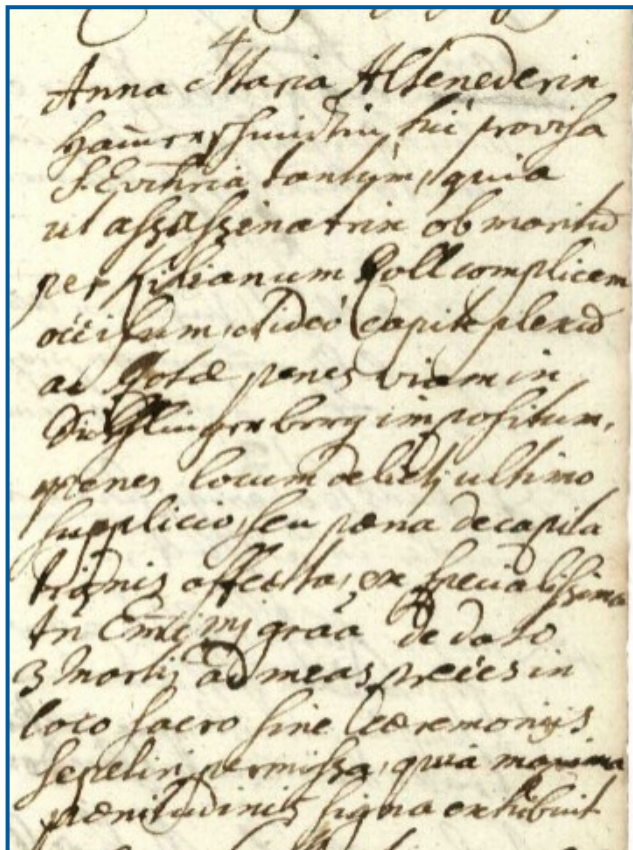 4
Anna Maria Altenederin
Ham̄erschmidin, hic provisa
S. Euchria tantum, quia
ut assassinatrix ob maritū
per Kilianum Koll complicem
occisum, et ideo capite plexū
ac Rotæ penes viam in
impositum,
penes locum delicti ultimo
supplicio, seu pœna decapita
tionis affecta, ex specialissima
Emi graã de dato
3 Martij ad meas preces in
loco sacro sine Cæremonijs
sepeliri permissa, quia maxima
pœnitudinis signa exhibuit